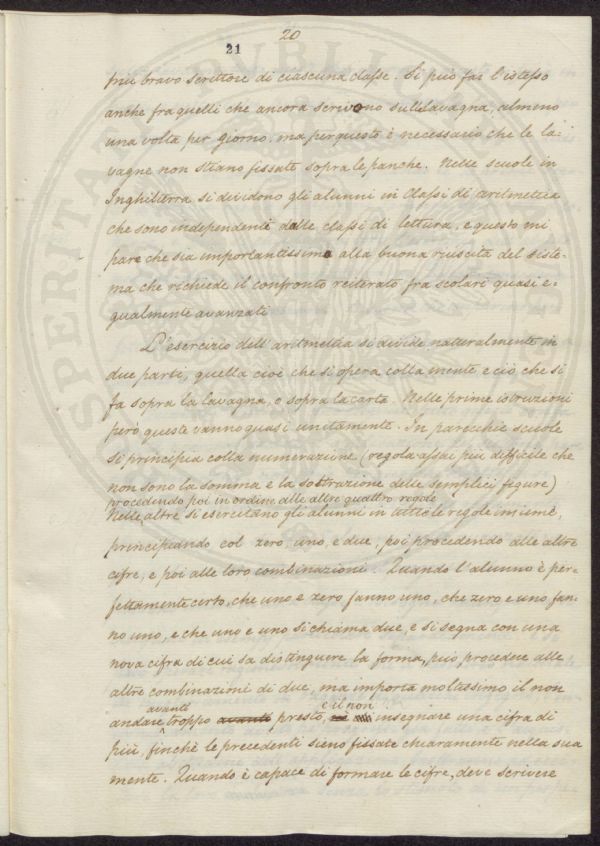 20
21
più bravo scrittore di ciascuna classe. Si può far l'istesso
anche fra quelli che ancora scrivono sulla lavagna, almeno
una volta per giorno, ma per questo è necessario che le la:
vagne non stiano fissate sopra le panche. Nelle scuole in
Inghilterra si dividono gli alunni in Classi di aritmetica
che sono independenti dalle classi di lettura, e questo mi
pare che sia importantissimo alla buona riuscita del siste-
ma che richiede il confronto reiterato fra scolari quasi e-
gualmente avanzati
L'esercizio dell'aritmetica si divide naturalmente in
due parti, quella cioè che si opera colla mente, e ciò che si
fa sopra la lavagna, o sopra la carta. Nelle prime istruzioni
però queste vanno quasi unitamente. In parecchie scuole
si principia colla numerazione (regola assai più difficile che
non sono la somma e la sottrazione delle semplici figure)
procedendo poi in ordine alle altre quattro regole
Nelle altre si esercitano gli alunni in tutte le regole insieme,
principiando col zero, uno, e due, poi procedendo alle altre
cifre, e poi alle loro combinazioni. Quando l'alunno è per-
fettamente certo, che uno e zero fanno uno, che zero e uno fan-
no uno, e che uno e uno si chiama due, e si segna con una
nova cifra di cui sa distinguere la forma, può procedere alle
altre combinazioni di due, ma importa moltissimo il non
avanti e il non
andare troppo avanti presto, insegnare una cifra di
più, finchè le precedenti sieno fissate chiaramente nella sua
mente. Quando è capace di formare le cifre, deve scrivere
PUBLIC